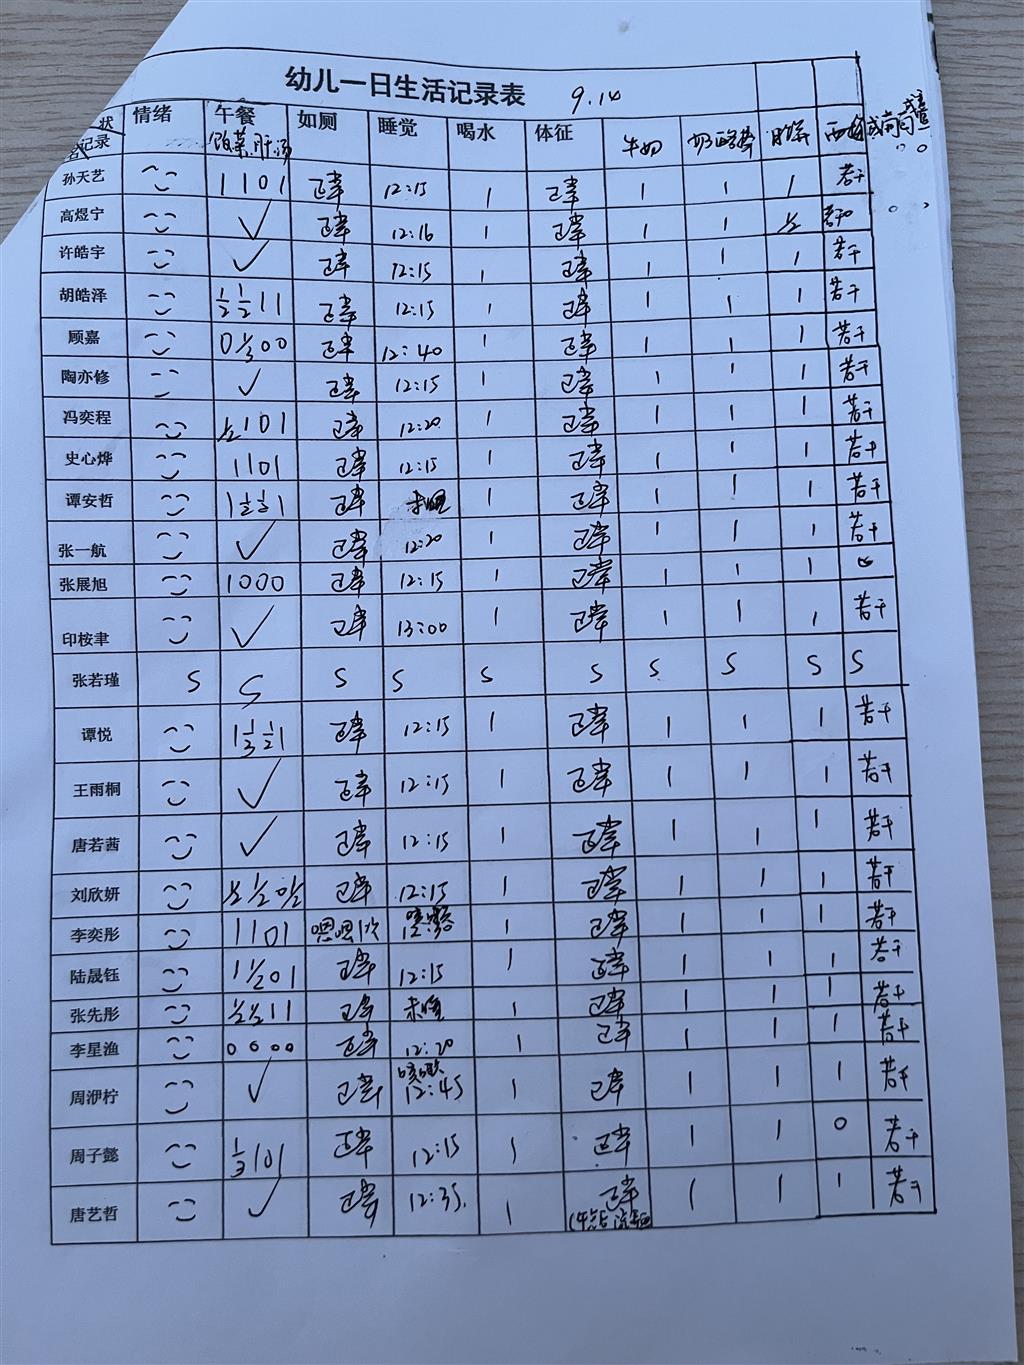 幼儿一日生活记录表 9.14
状 情绪 午餐 如厕 睡觉 喝水 体征 牛奶
记录 饭菜肝汤
孙天艺 1 1 0 1 正常 12:15 1 正常 1 1 1 若干
高煜宁 ✓ 正常 12:16 1 正常 1 1 ½ 若干
许皓宇 ✓ 正常 12:15 1 正常 1 1 1 若干
胡皓泽 ½ ½ 1 1 正常 12:15 1 正常 1 1 1 若干
顾嘉 0 ⅓ 0 0 正常 12:40 1 正常 1 1 1 若干
陶亦修 ✓ 正常 12:15 1 正常 1 1 1 若干
冯奕程 ½ 1 0 1 正常 12:20 1 正常 1 1 1 若干
史心烨 1 1 0 1 正常 12:15 1 正常 1 1 1 若干
谭安哲 1 ½ ½ 1 正常 未睡 1 正常 1 1 1 若干
张一航 ✓ 正常 12:20 1 正常 1 1 1 若干
张展旭 1 0 0 0 正常 12:15 1 正常 1 1 1
印桉聿 ✓ 正常 13:00 1 正常 1 1 1 若干
张若瑾 S S S S S S S S S S
谭悦 1 ⅓ ½ 1 正常 12:15 1 正常 1 1 1 若干
王雨桐 ✓ 正常 12:15 1 正常 1 1 1 若干
唐若茜 ✓ 正常 12:15 1 正常 1 1 1 若干
刘欣妍 ½ ½ 0 ½ 正常 12:15 1 正常 1 1 1 若干
李奕彤 1 1 0 1 嗯嗯1次 1 正常 1 1 1 若干
陆晟钰 1 ½ 0 1 正常 12:15 1 正常 1 1 1 若干
张先彤 ½ ½ 1 1 正常 未睡 1 正常 1 1 1 若干
李星渔 0 0 0 0 正常 12:20 1 正常 1 1 1 若干
周洢柠 ✓ 正常 咳嗽 12:45 1 正常 1 1 1 若干
周子懿 ⅓ 1 0 1 正常 12:15 1 正常 1 1 0 若干
唐艺哲 ✓ 正常 12:35 1 正常 1 1 1 若干